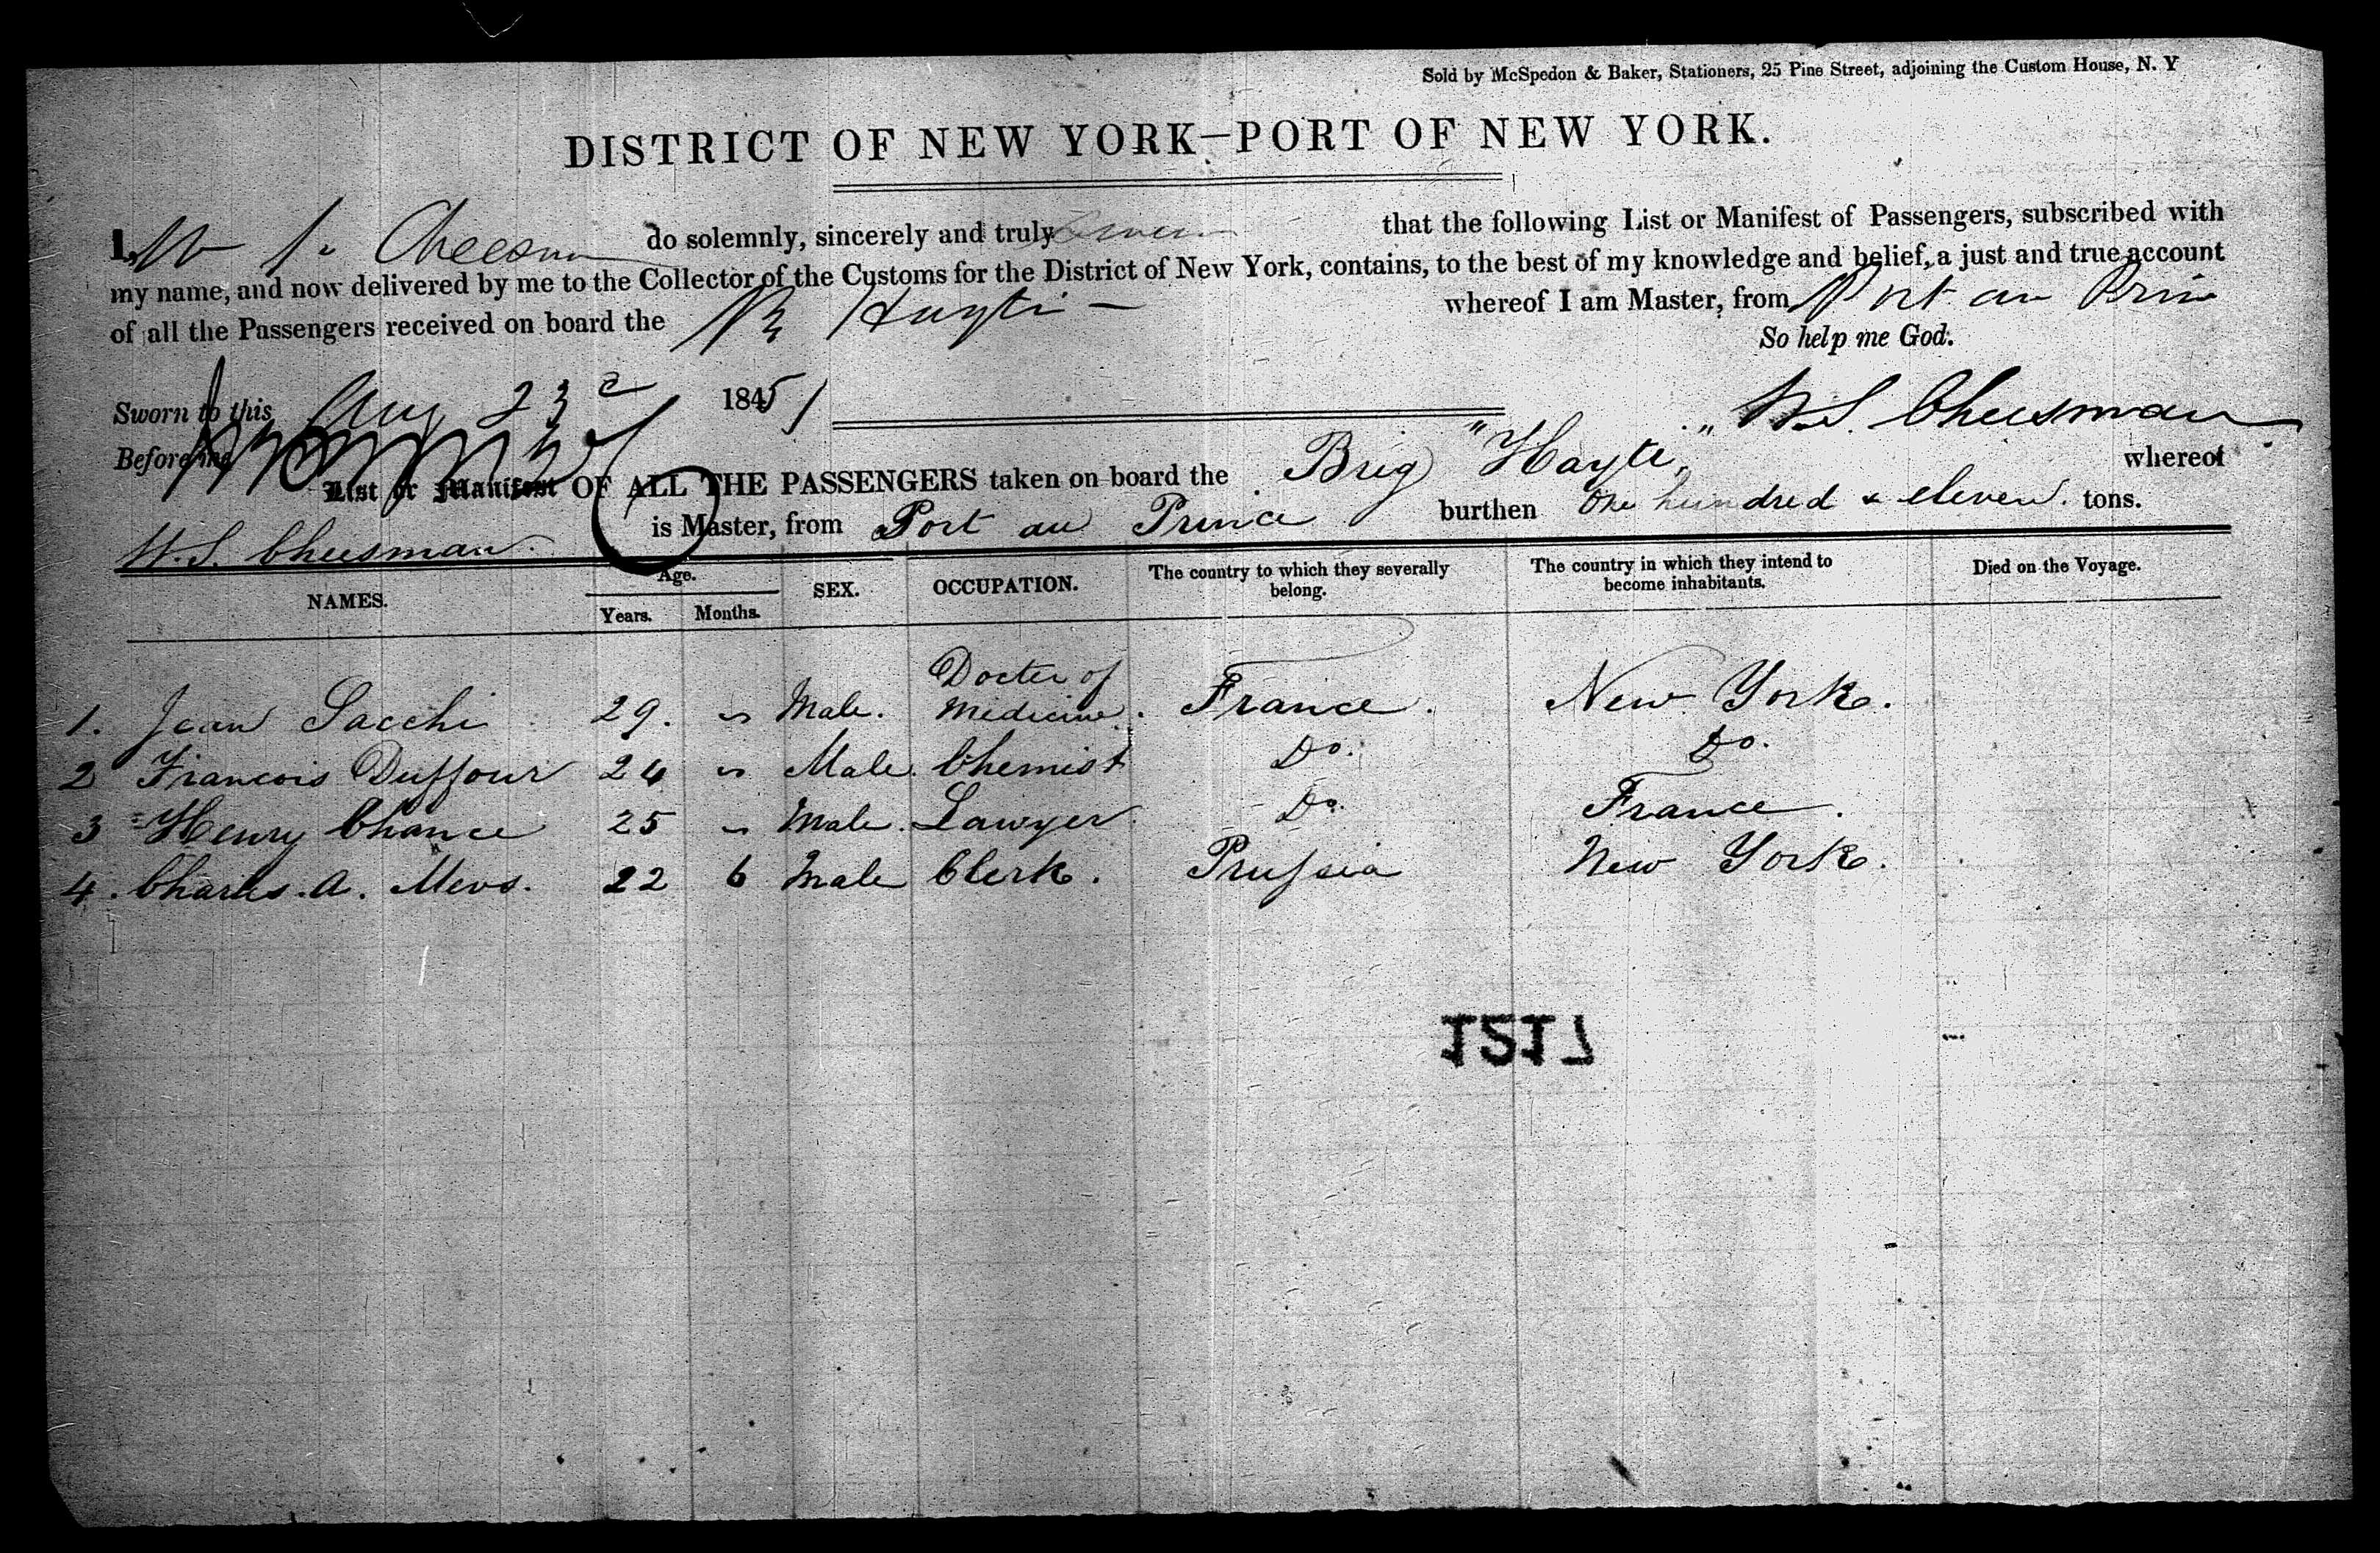 Sold by McSpedon & Baker, Stationers, 25 Pine Street, adjoining the Custom House, N. Y
DISTRICT OF NEW YORK—PORT OF NEW YORK.
I, W S Cheesman do solemnly, sincerely and truly swear that the following List or Manifest of Passengers, subscribed with
my name, and now delivered by me to the Collector of the Customs for the District of New York, contains, to the best of my knowledge and belief, a just and true account
of all the Passengers received on board the Br Hayti whereof I am Master, from Port au Prin
So help me God.
Sworn to this Aug 23d 1851
W.S. Cheesman
Before me
List or Manifest OF ALL THE PASSENGERS taken on board the Brig "Hayti," whereof
W.S. Cheesman. is Master, from Port au Prince burthen One hundred & eleven. tons.
NAMES. Age. Years. Months. SEX. OCCUPATION. The country to which they severally belong. The country in which they intend to become inhabitants. Died on the Voyage.
1. Jean Sacchi 29. " Male. Docter of Medicine. France. New York.
2 Francois Duffour 24 " Male. Chemist Do. Do.
3 Henry Chance 25 " Male. Lawyer Do. France.
4. Charles. A. Mevs. 22 6 Male Clerk. Prussia New York.
1217